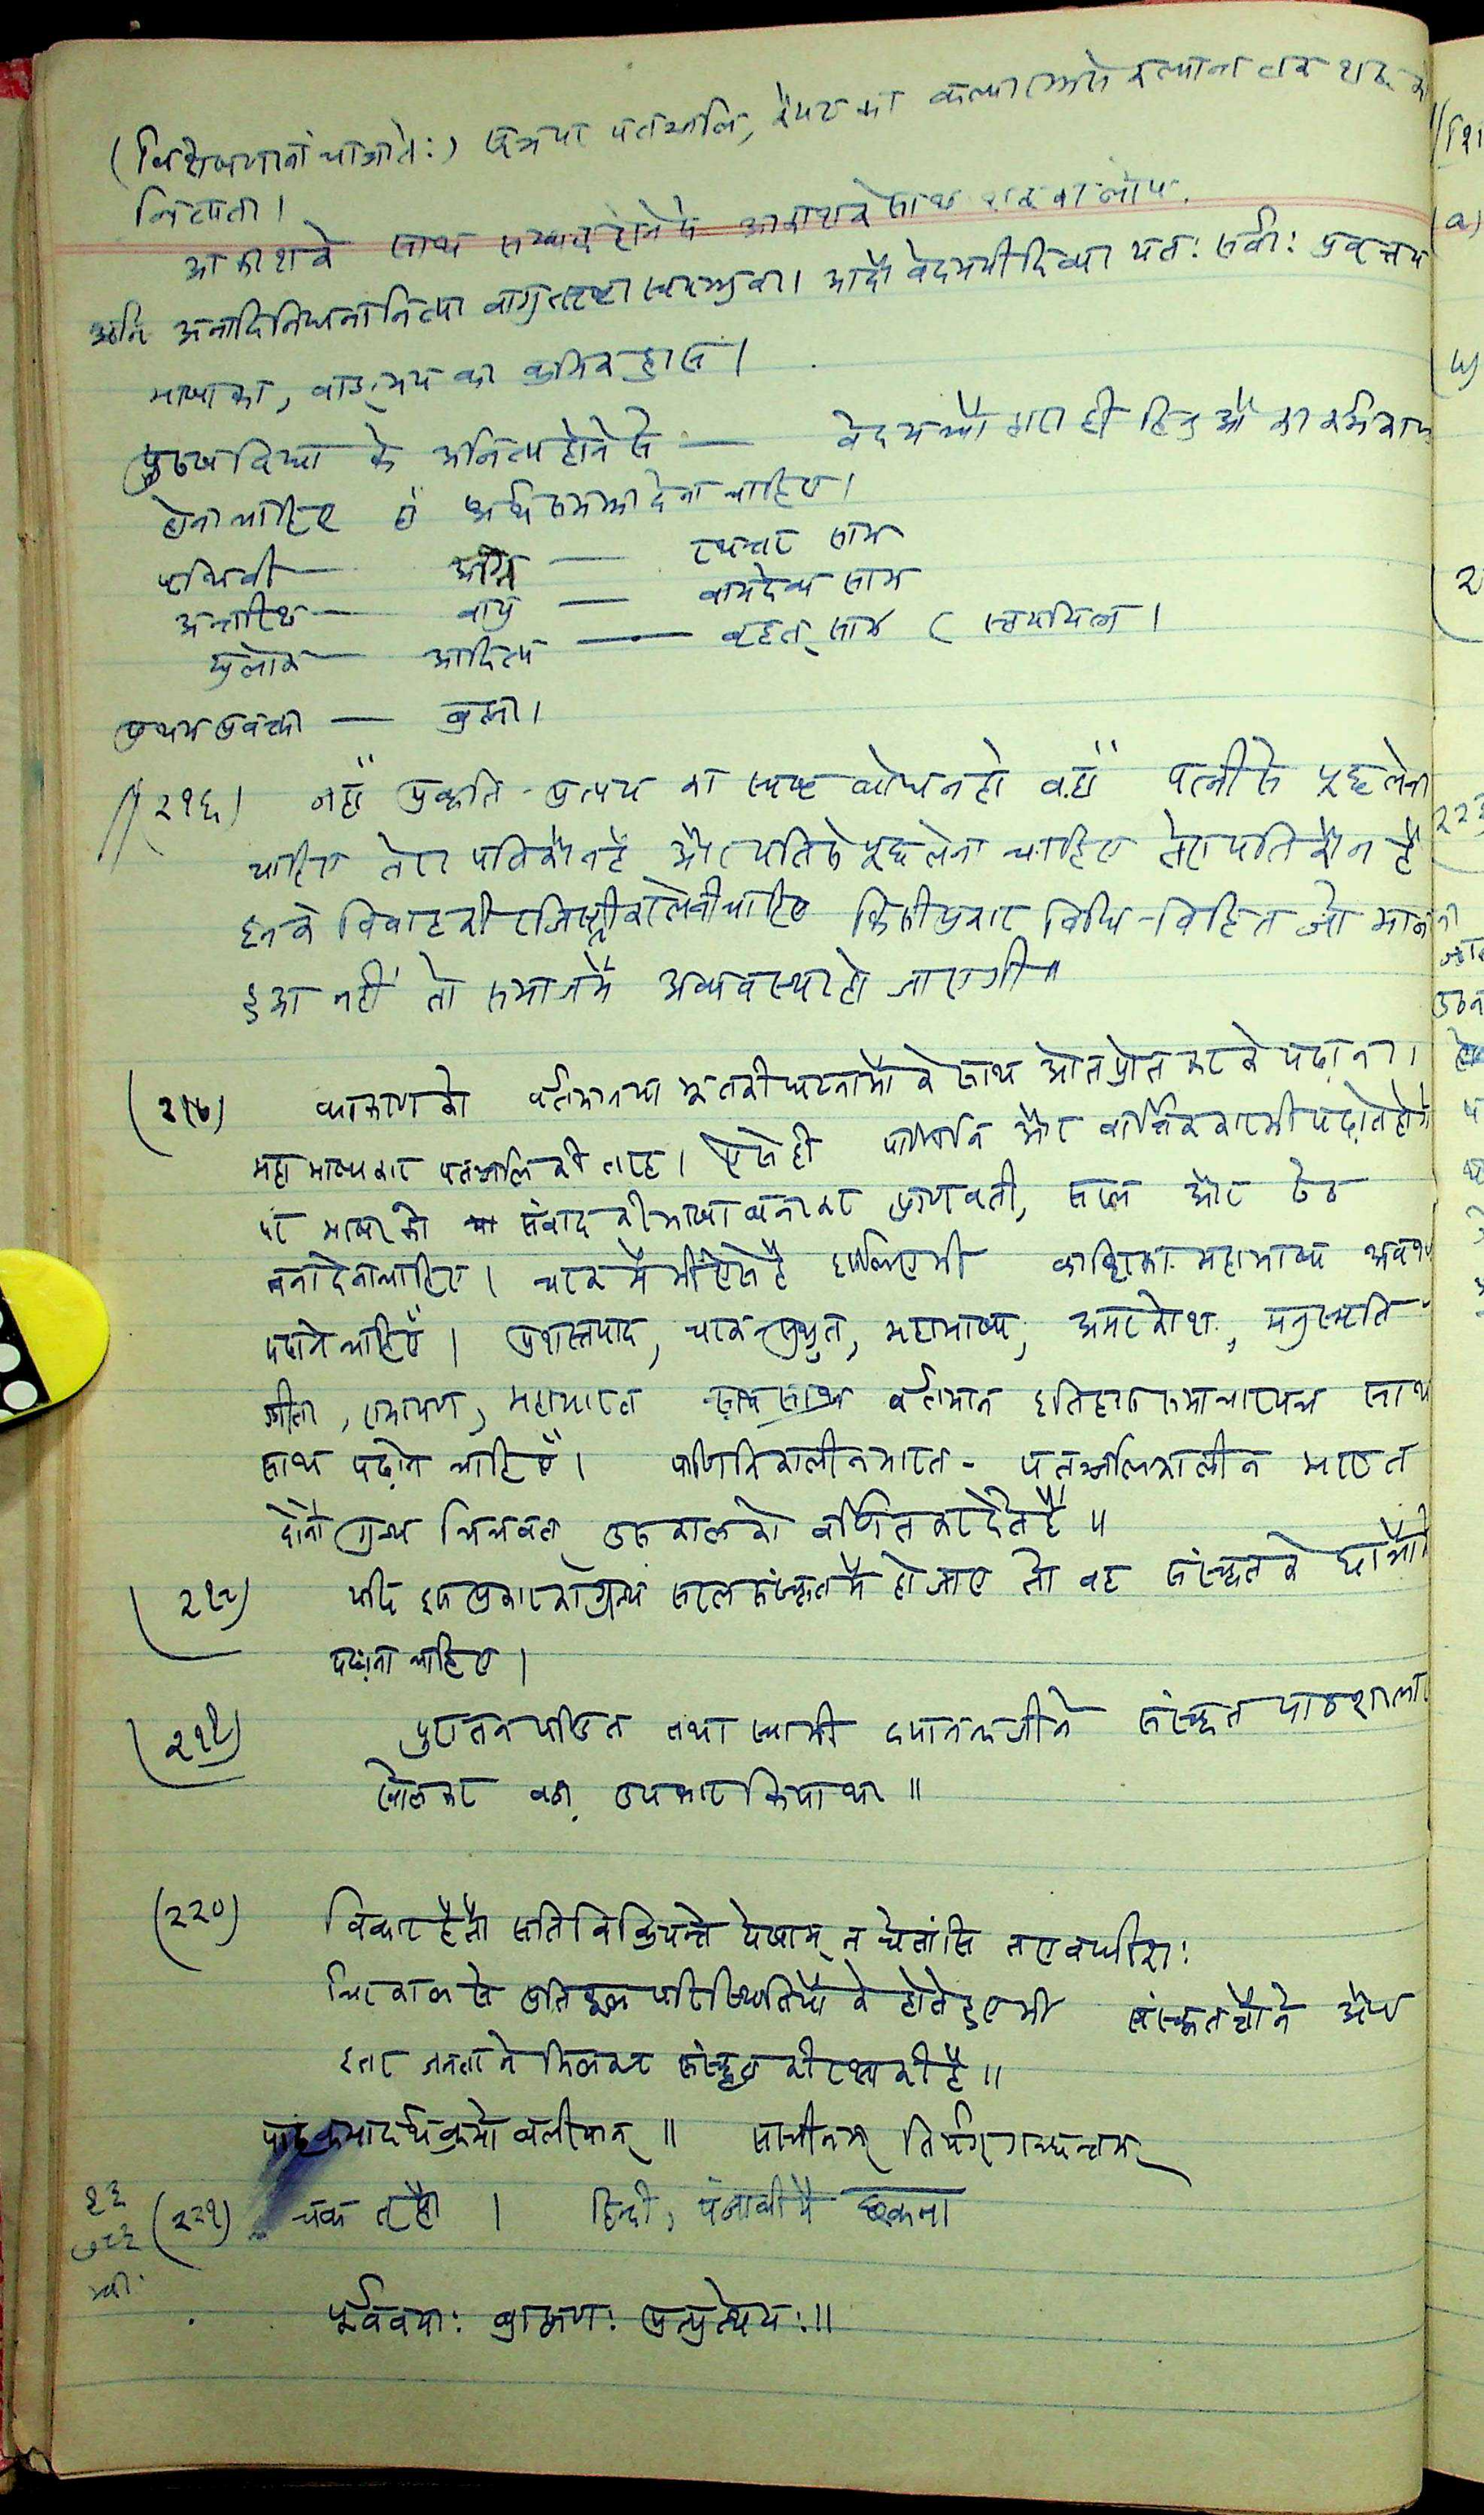 (विशेषणानां चाजातेः) अथवा पतञ्जलि, कैयट का
नित्यता।
आकाशके साथ सम्बन्ध होनेसे आकाशके साथ शब्द का लोप.
अनादिनिधना नित्या वागुत्सृष्टा स्वयम्भुवा। आदौ वेदमयी दिव्या यतः सर्वाः प्रवृत्तय
भाषाका, वाङ्मय का क्रमिक ह्रास।
पुरुषविद्या के अनित्य होने से — वेदमन्त्रों द्वारा ही
होना चाहिए
पृथिवी — अग्नि — रथन्तर साम
अन्तरिक्ष — वायु — वामदेव्य साम
द्युलोक — आदित्य — बृहत् साम (
प्रथम प्रवक्ता — ब्रह्मा।
//(२१६) जहाँ प्रकृति-प्रत्यय का स्पष्ट बोध न हो वहाँ पत्नी से पूछ लेना
चाहिए तेरा पति कौन है और पति से पूछ लेना चाहिए तेरा पति कौन है
इनके विवाह की रजिस्ट्री करा लेनी चाहिए किसी प्रकार विधि-विहित जो
हुआ नहीं तो समाज में अव्यवस्था हो जाएगी"
(२१७) व्याकरण को वर्तमान या भूत की घटनाओं के साथ ओतप्रोत कर के पढ़ाना।
महाभाष्यकार पतञ्जलि की तरह। ऐसे ही पाणिनि और वार्त्तिककार भी पढ़ाते होंगे
पर भाषा को संवाद की भाषा बनाकर प्राणवती, सरल और ठेठ
बना देना चाहिए। चरक में भी ऐसे है इसलिए भी काशिका महाभाष्य अवश्य
पढ़ाने चाहिएँ। प्रशस्तपाद, चरक सुश्रुत, महाभाष्य, अमरकोश, मनुस्मृति
गीता, रामायण, महाभारत साथ साथ वर्तमान इतिहास समाचारपत्र साथ
साथ पढ़ाने चाहिएँ। पाणिनिकालीन भारत - पतञ्जलिकालीन भारत
दोनों ग्रन्थ चित्रवत् उस काल को वर्णित कर देते हैं॥
(२१८) यदि इस प्रकार का ग्रन्थ सरल संस्कृत में हो जाए तो वह संस्कृत के छात्रों को
पढ़ाना चाहिए।
(२१९) पुरातन पण्डित तथा स्वामी दयानन्दजीने संस्कृत पाठशाला
खोलकर बड़ा उपकार किया था॥
(२२०) विकार हेतौ सति विक्रियन्ते येषाम् न चेतांसि त एव धीराः
चिरकाल से प्रतिकूल परिस्थितियों के होते हुए भी संस्कृतज्ञों ने और
इतर जनता ने मिलकर संस्कृत की रक्षा की है॥
पाठक्रमादर्थक्रमो बलीयान्॥ साचीनम् तिर्यग् गच्छन्तम्
(२२१) चक तृप्तौ। हिन्दी, पंजाबी में छकना
पूर्ववयाः ब्राह्मणः प्रत्युत्थेयः॥